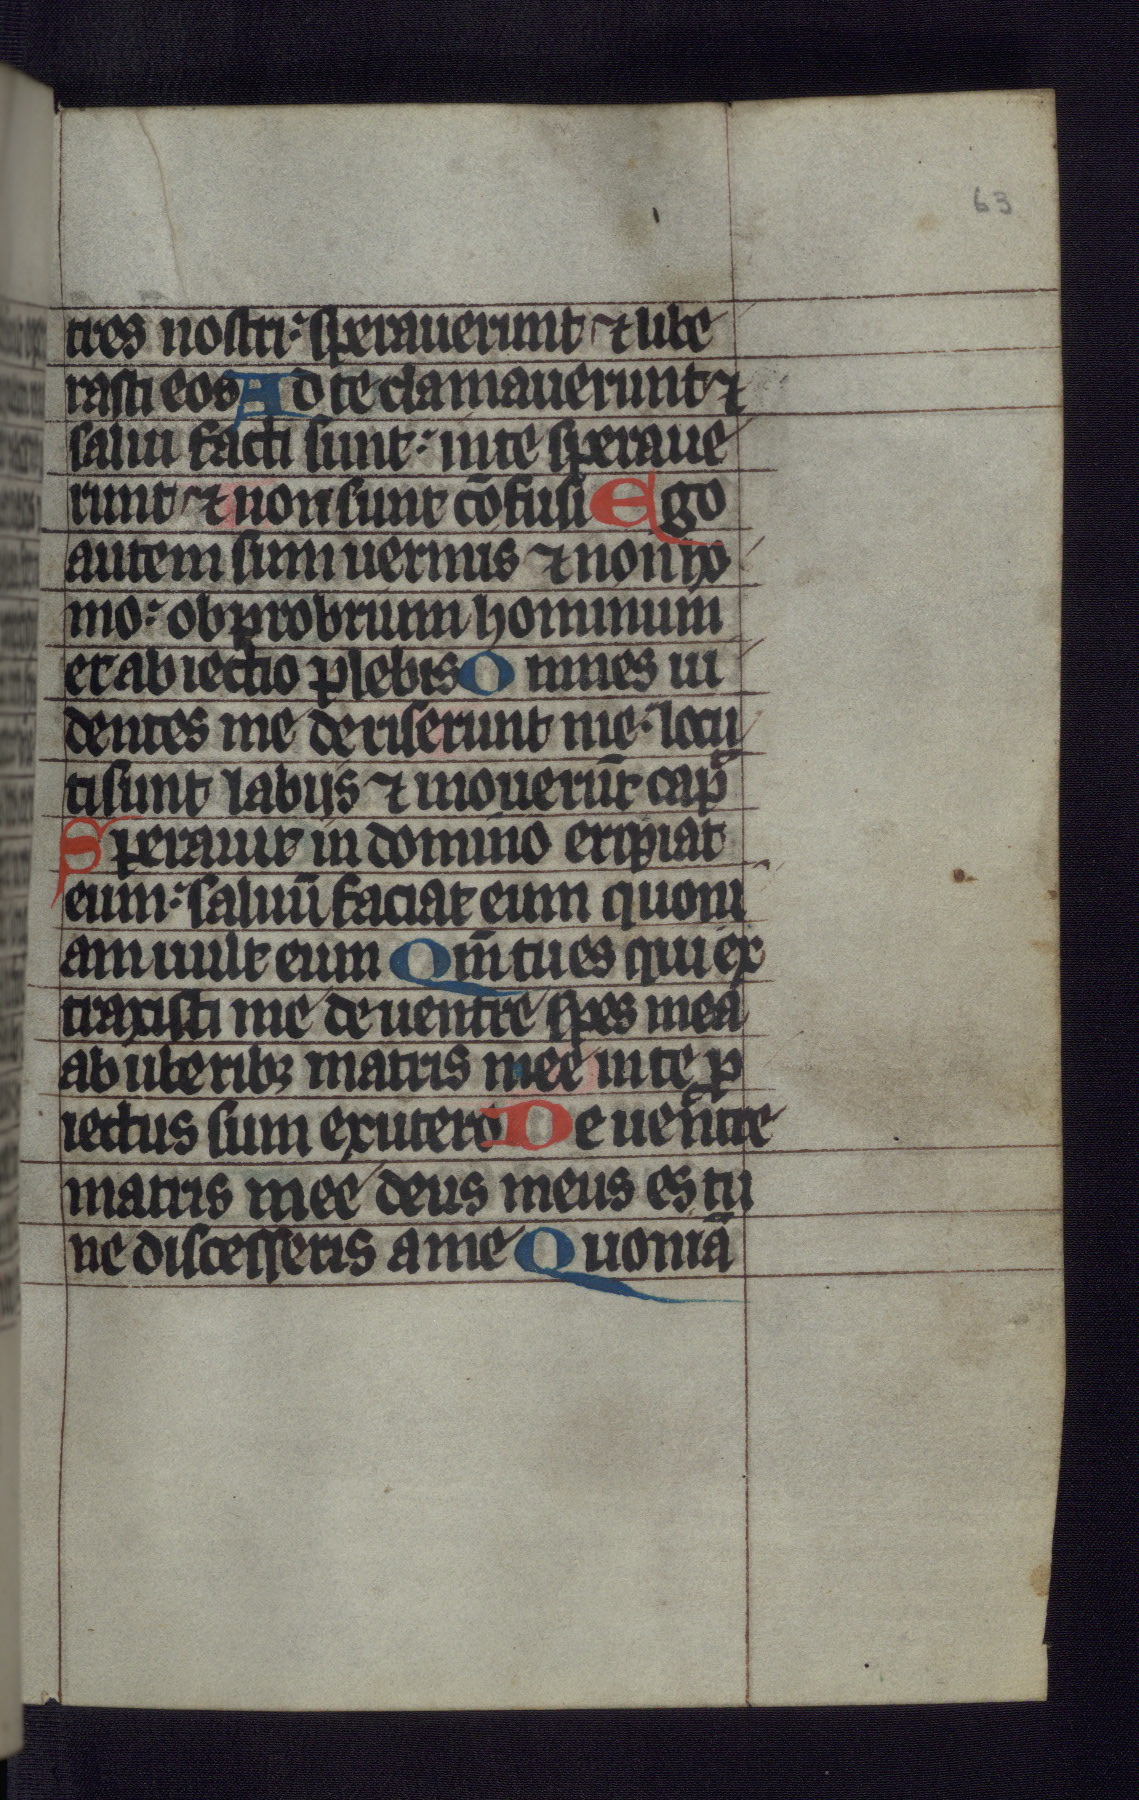 63
tres nostri: sperauerunt ⁊ libe
rasti eos Ad te clamauerunt ⁊
salui facti sunt: in te speraue
runt ⁊ non sunt cōfusi Ego
autem sum uermis ⁊ non ho
mo: obprobrium hominum
et abiectio plebis Omnes ui
dentes me deriserunt me: locu
ti sunt labijs ⁊ mouerūt cap̄
Sperauit in domino eripiat
eum: saluū faciat eum quoni
am uult eum Qm̄ tu es qui ex
traxisti me de uentre spes mea
ab uberibꝫ matris mee in te p
iectus sum ex utero De uentre
matris mee deus meus es tu
ne discesseris a me Quoniā